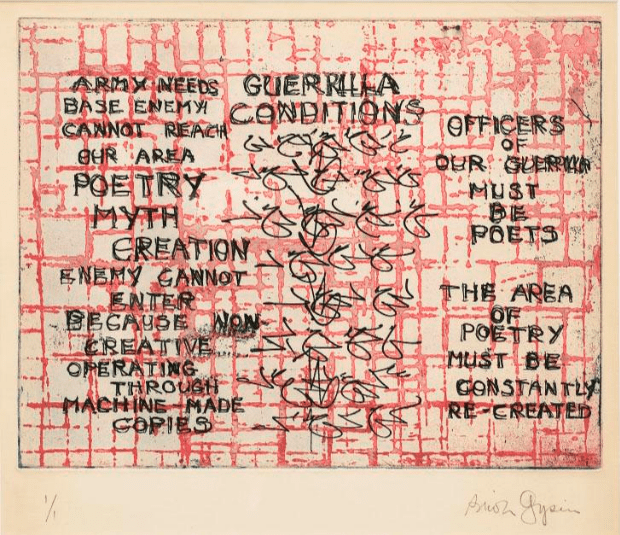 ARMY NEEDS
BASE ENEMY
CANNOT REACH
OUR AREA
POETRY
MYTH
CREATION
ENEMY CANNOT
ENTER
BECAUSE NON-
CREATIVE
OPERATING
THROUGH
MACHINE MADE
COPIES
GUERRILLA
CONDITIONS
OFFICERS
OF
OUR GUERILLA
MUST
BE
POETS
THE AREA
OF
POETRY
MUST BE
CONSTANTLY
RE-CREATED
1/1
Brion Gysin